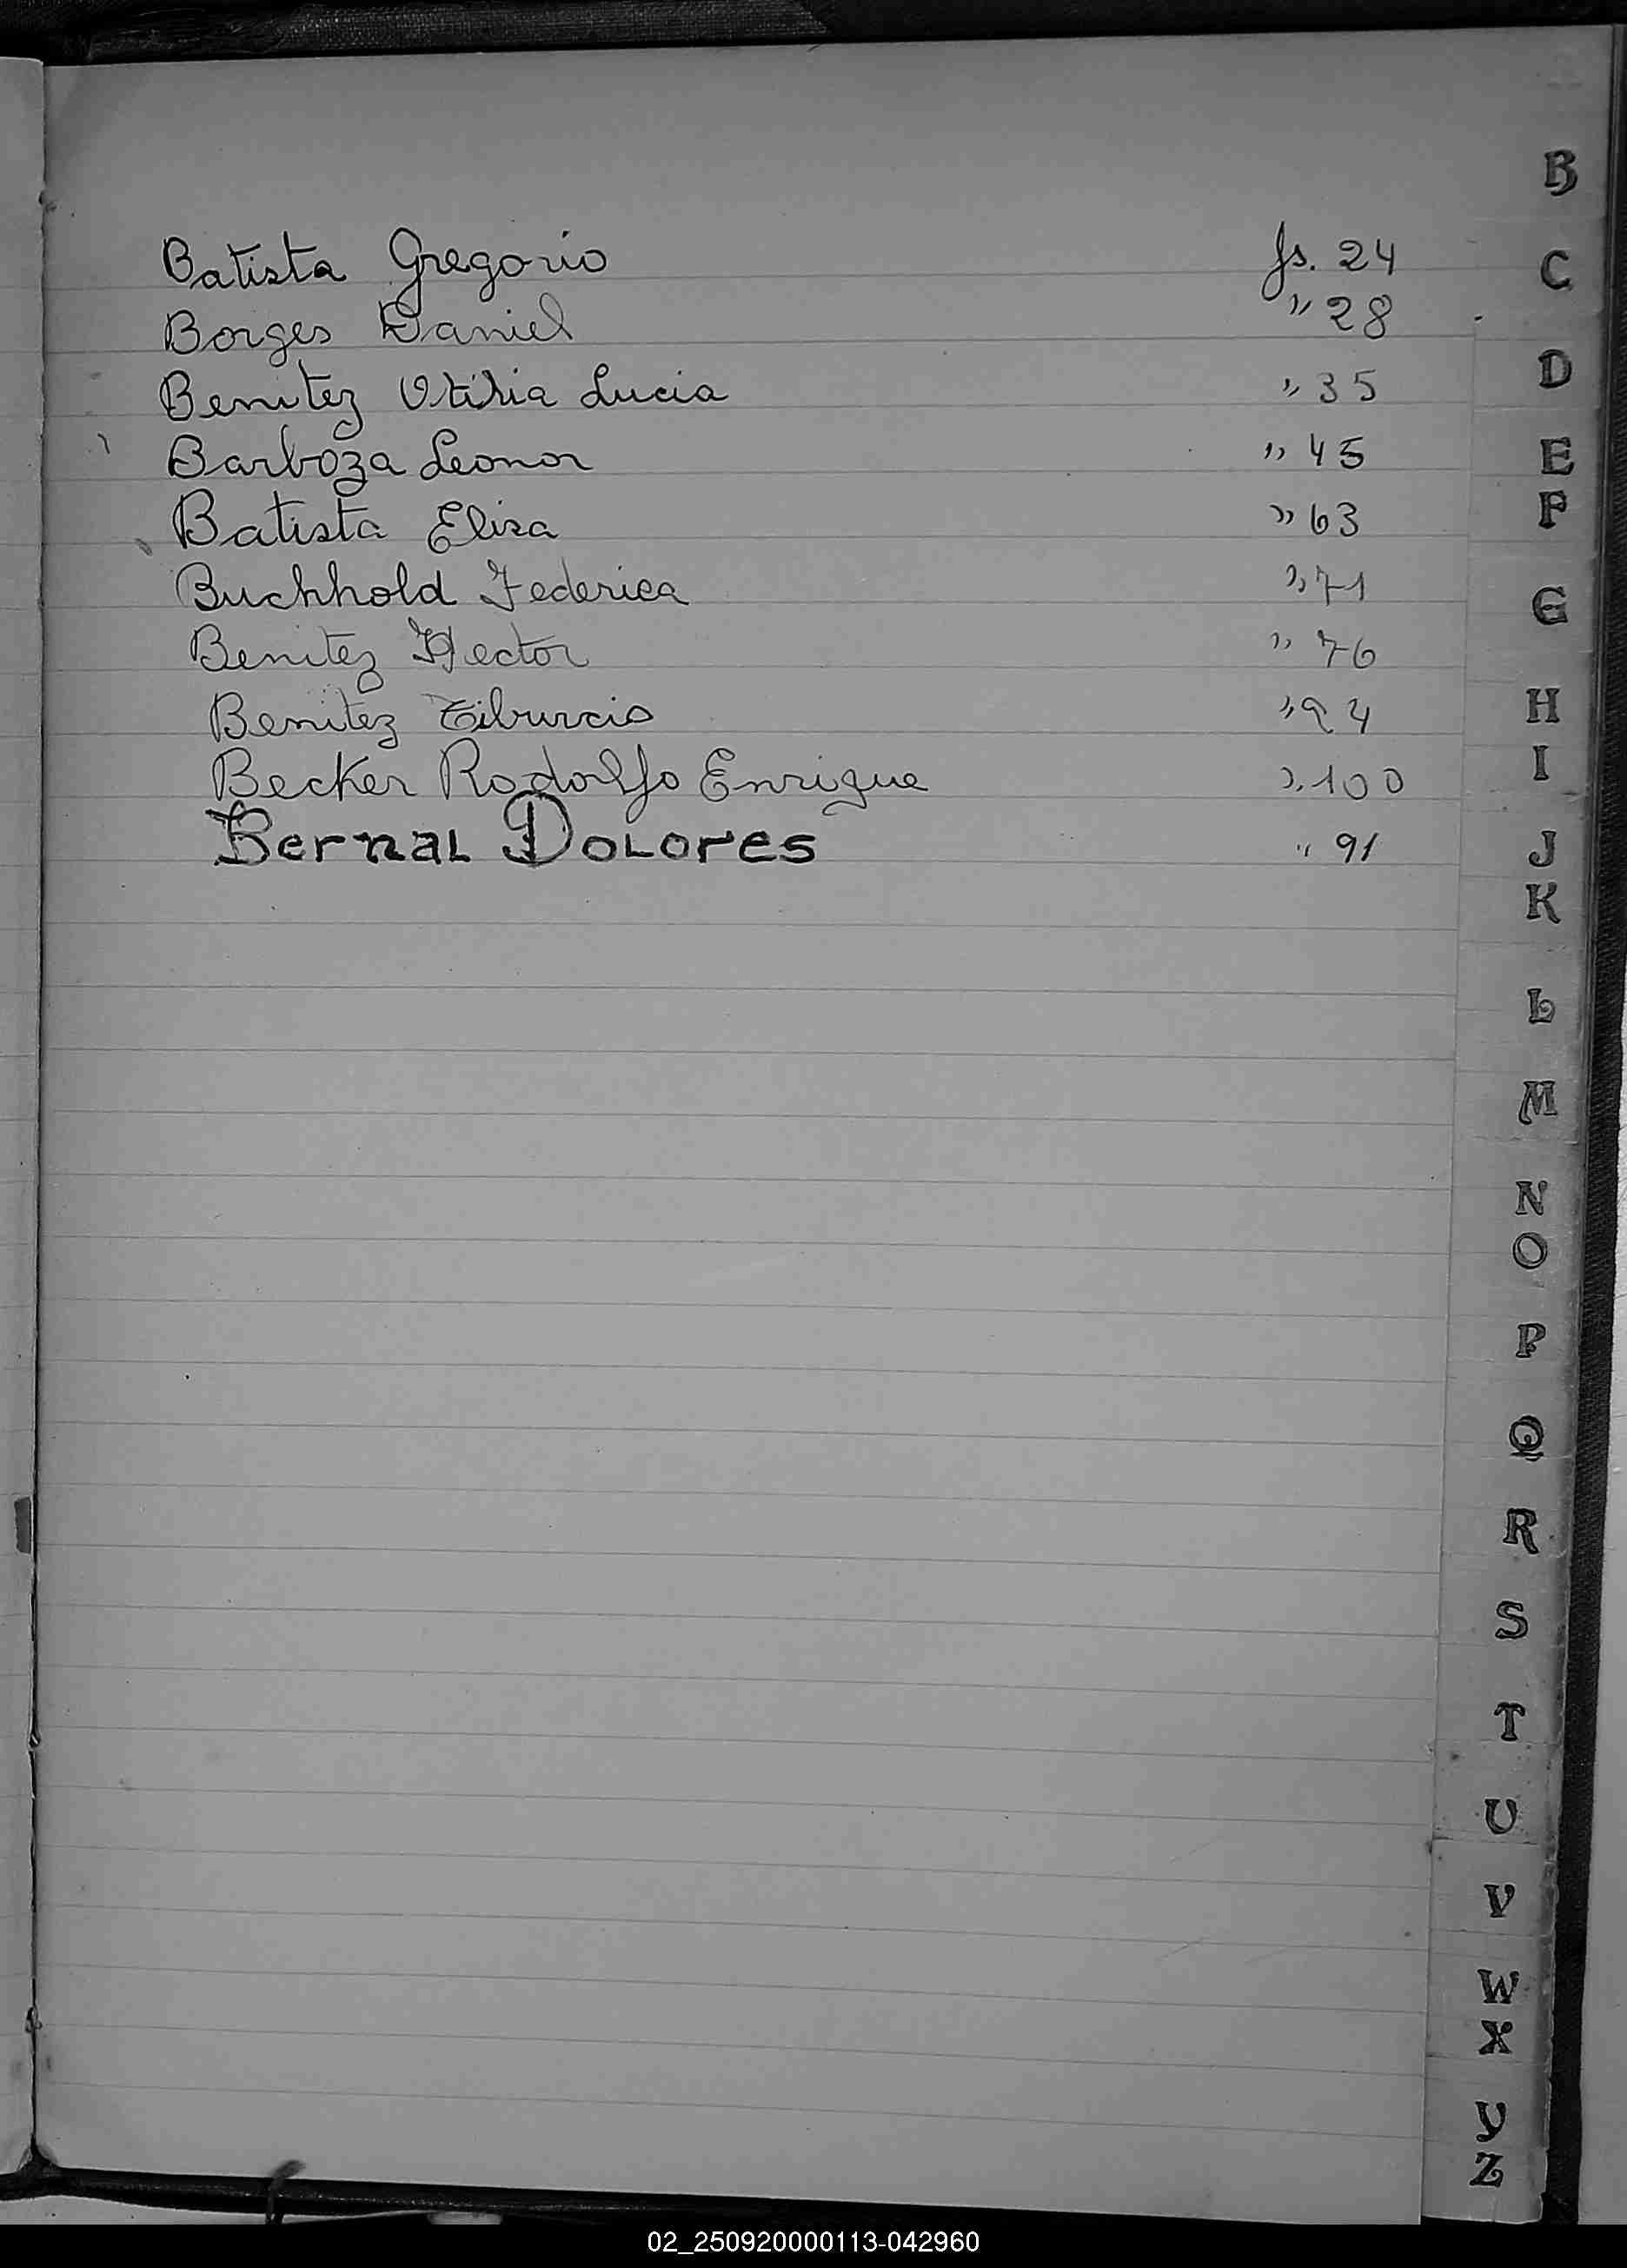 Batista Gregorio fs. 24
Borges Daniel " 28
Benitez Otilia Lucia " 35
Barboza Leonor " 45
Batista Elisa " 63
Buchhold Federica " 71
Benitez Hector " 76
Benitez Tiburcio " 94
Becker Rodolfo Enrique " 100
Bernal Dolores " 91
B
C
D
E
F
G
H
I
J
K
L
M
N
O
P
Q
R
S
T
U
V
W
X
Y
Z
02_250920000113-042960